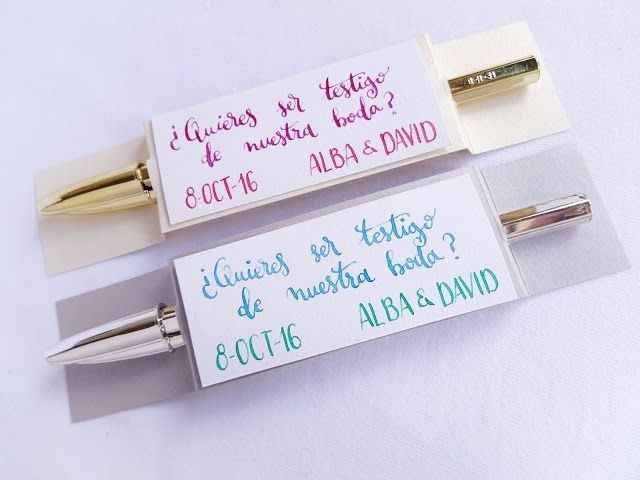 ¿Quieres ser testigo
de nuestra boda?
8-OCT-16 ALBA & DAVID
¿Quieres ser testigo
de nuestra boda?
8-OCT-16 ALBA & DAVID